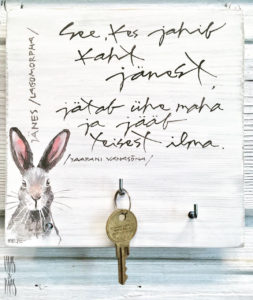 See, kes jahib
kaht
jänest,
jätab ühe maha
ja jääb
teisest ilma.
/SAARANI VANASÕNA/
JÄNES /LAGOMORPHA/